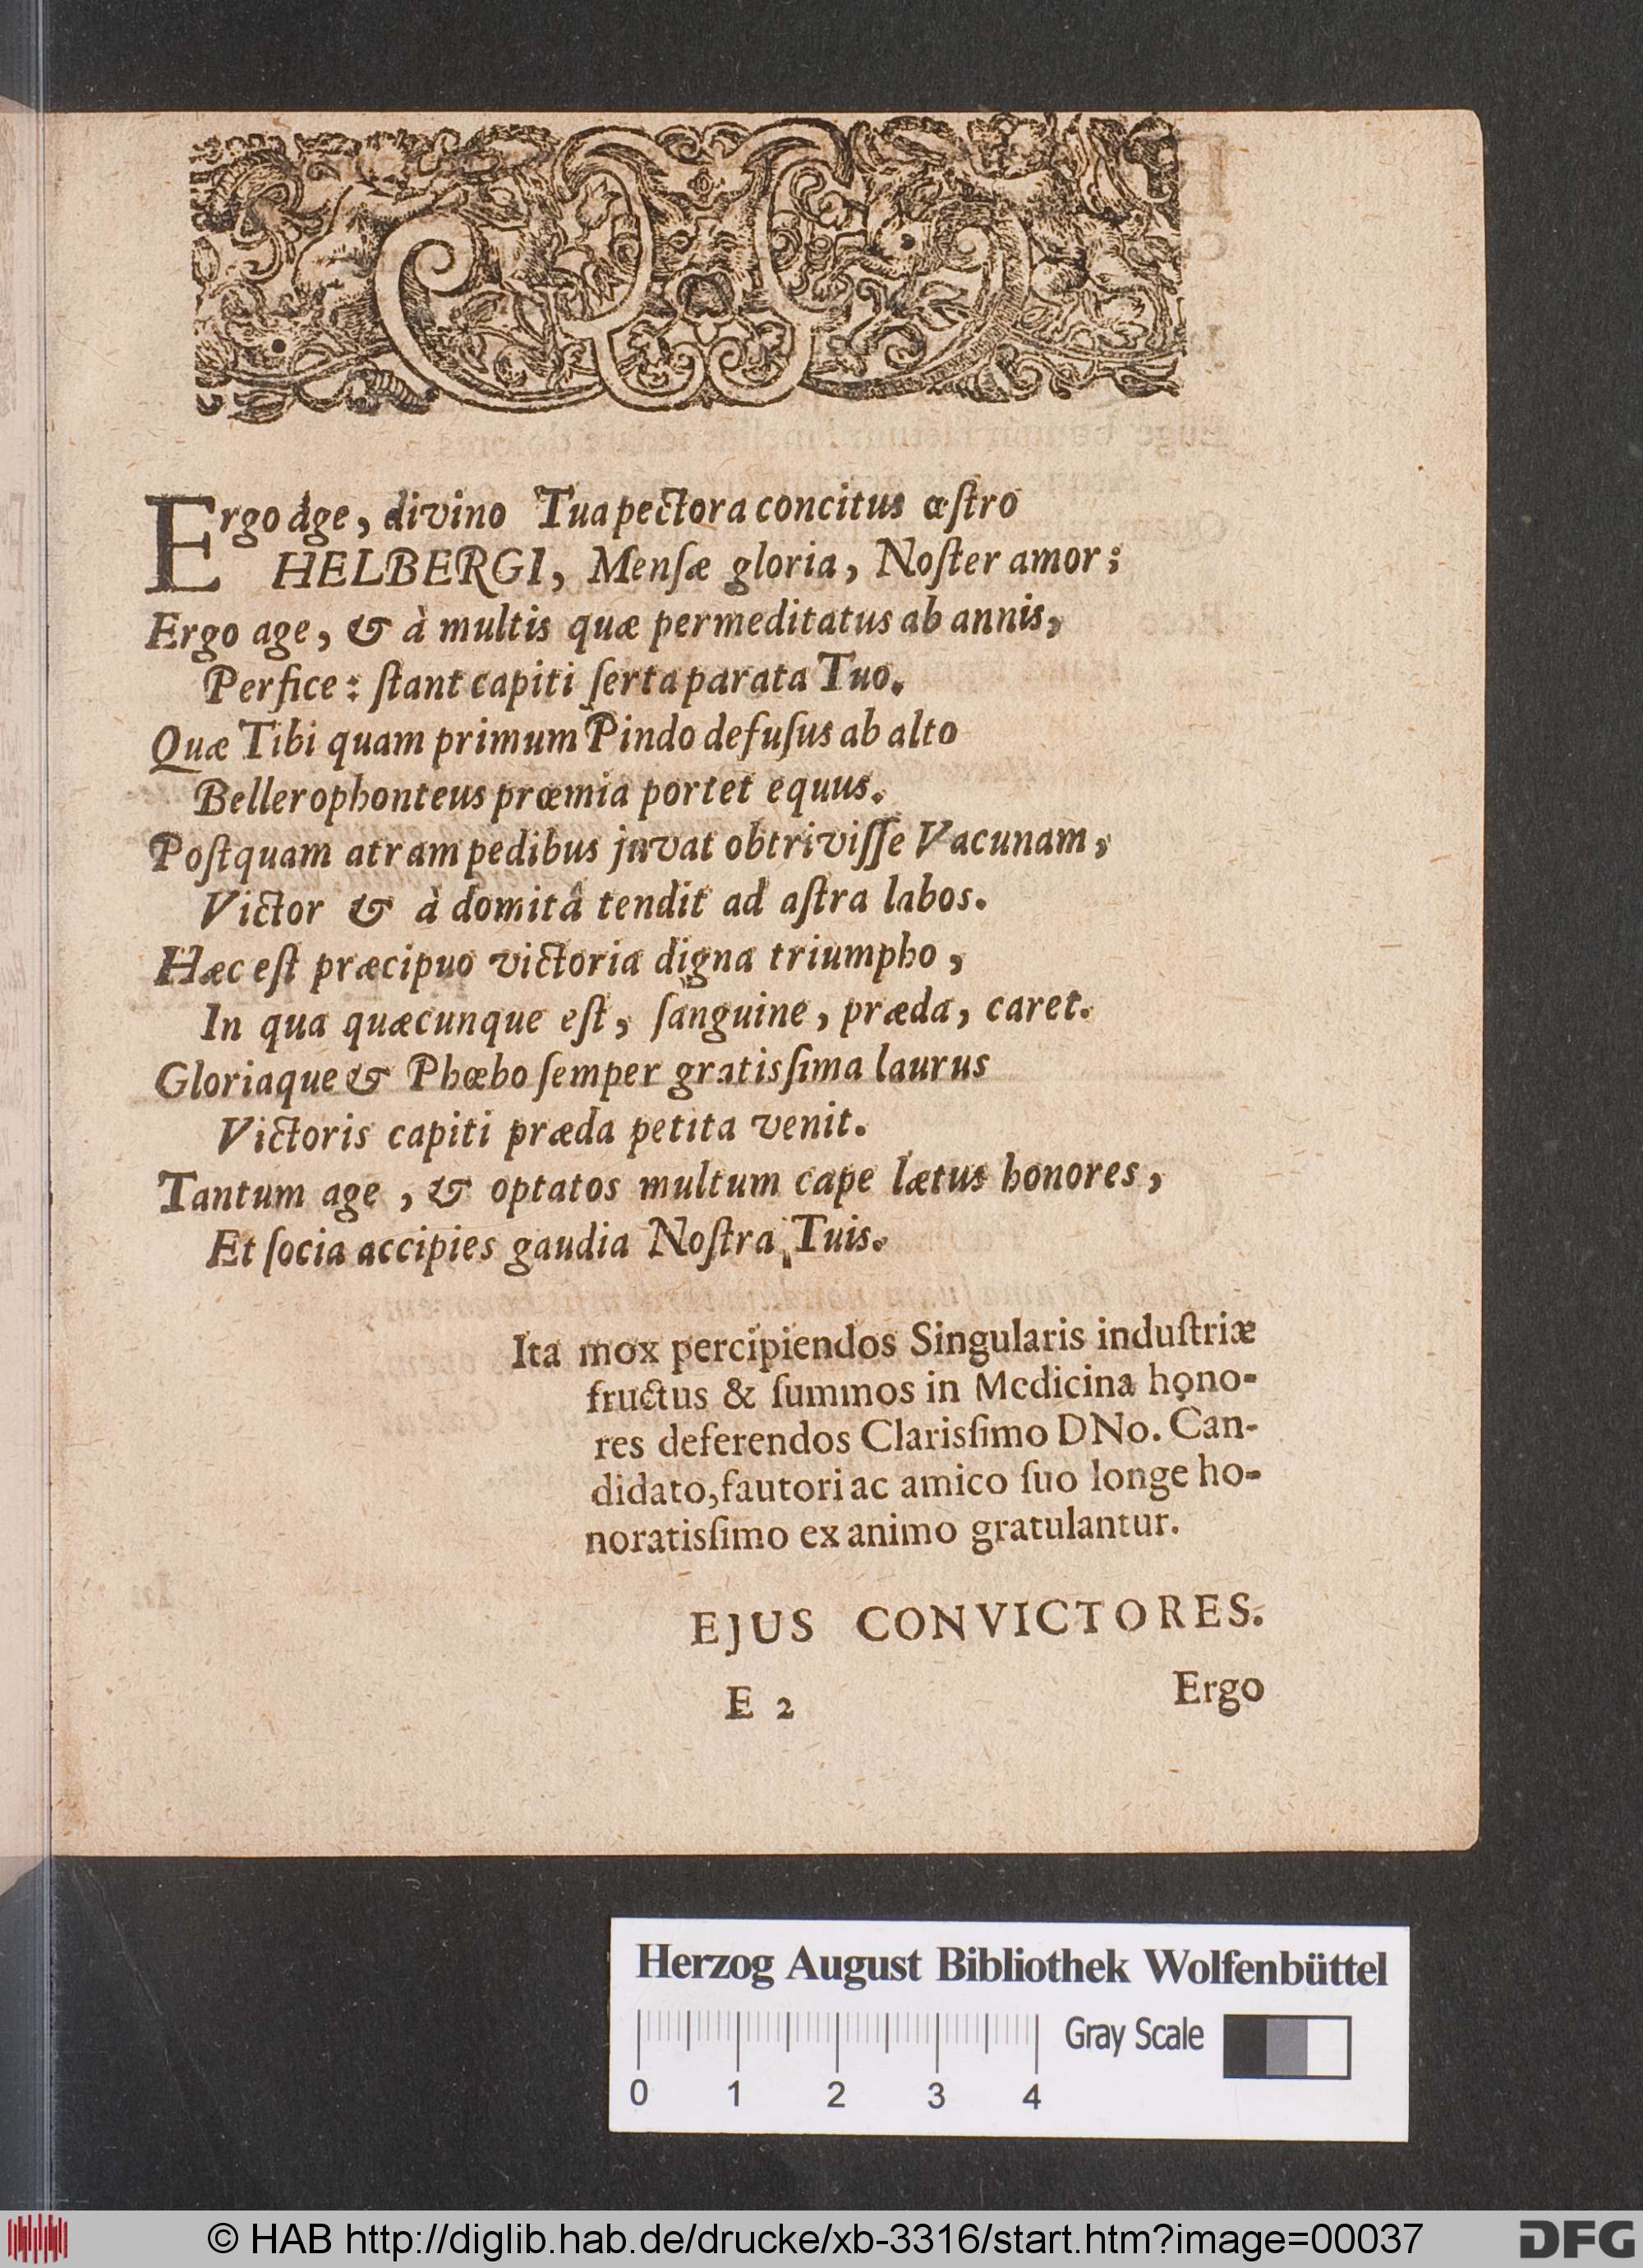 Ergo age, divino Tua pectora concitus œſtro
HELBERGI, Menſæ gloria, Noſter amor;
Ergo age, & à multis quæ permeditatus ab annis,
Perfice: ſtant capiti ſerta parata Tuo.
Quæ Tibi quam primum Pindo defuſus ab alto
Bellerophonteus præmia portet equus.
Poſtquam atram pedibus juvat obtriviſſe Vacunam,
Victor & à domitâ tendit ad aſtra labos.
Hæc eſt præcipuo victoria digna triumpho,
In qua quæcunque eſt, ſanguine, præda, caret.
Gloriaque & Phœbo ſemper gratisſima laurus
Victoris capiti præda petita venit.
Tantum age, & optatos multum cape lætus honores,
Et ſocia accipies gaudia Noſtra Tuis.
Ita mox percipiendos Singularis induſtriæ
fructus & ſummos in Medicina hono-
res deferendos Clarisſimo DNo. Can-
didato, fautori ac amico ſuo longe ho-
noratisſimo ex animo gratulantur.
EJUS CONVICTORES.
E 2
Ergo
Herzog August Bibliothek Wolfenbüttel
Gray Scale
0 1 2 3 4
© HAB http://diglib.hab.de/drucke/xb-3316/start.htm?image=00037
DFG